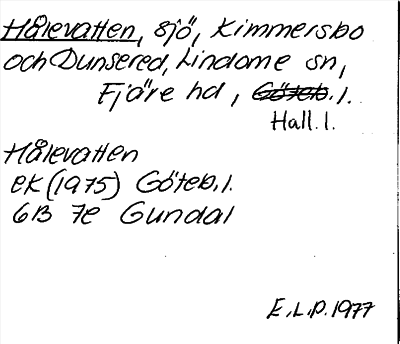 Hålevatten, sjö, Kimmersbo
och Dunsered, Lindome sn,
Fjäre hd, Göteb. l.
Hall. l.
Hålevatten
EK (1975) Göteb. l.
6B 7e Gundal
E.L.P. 1977